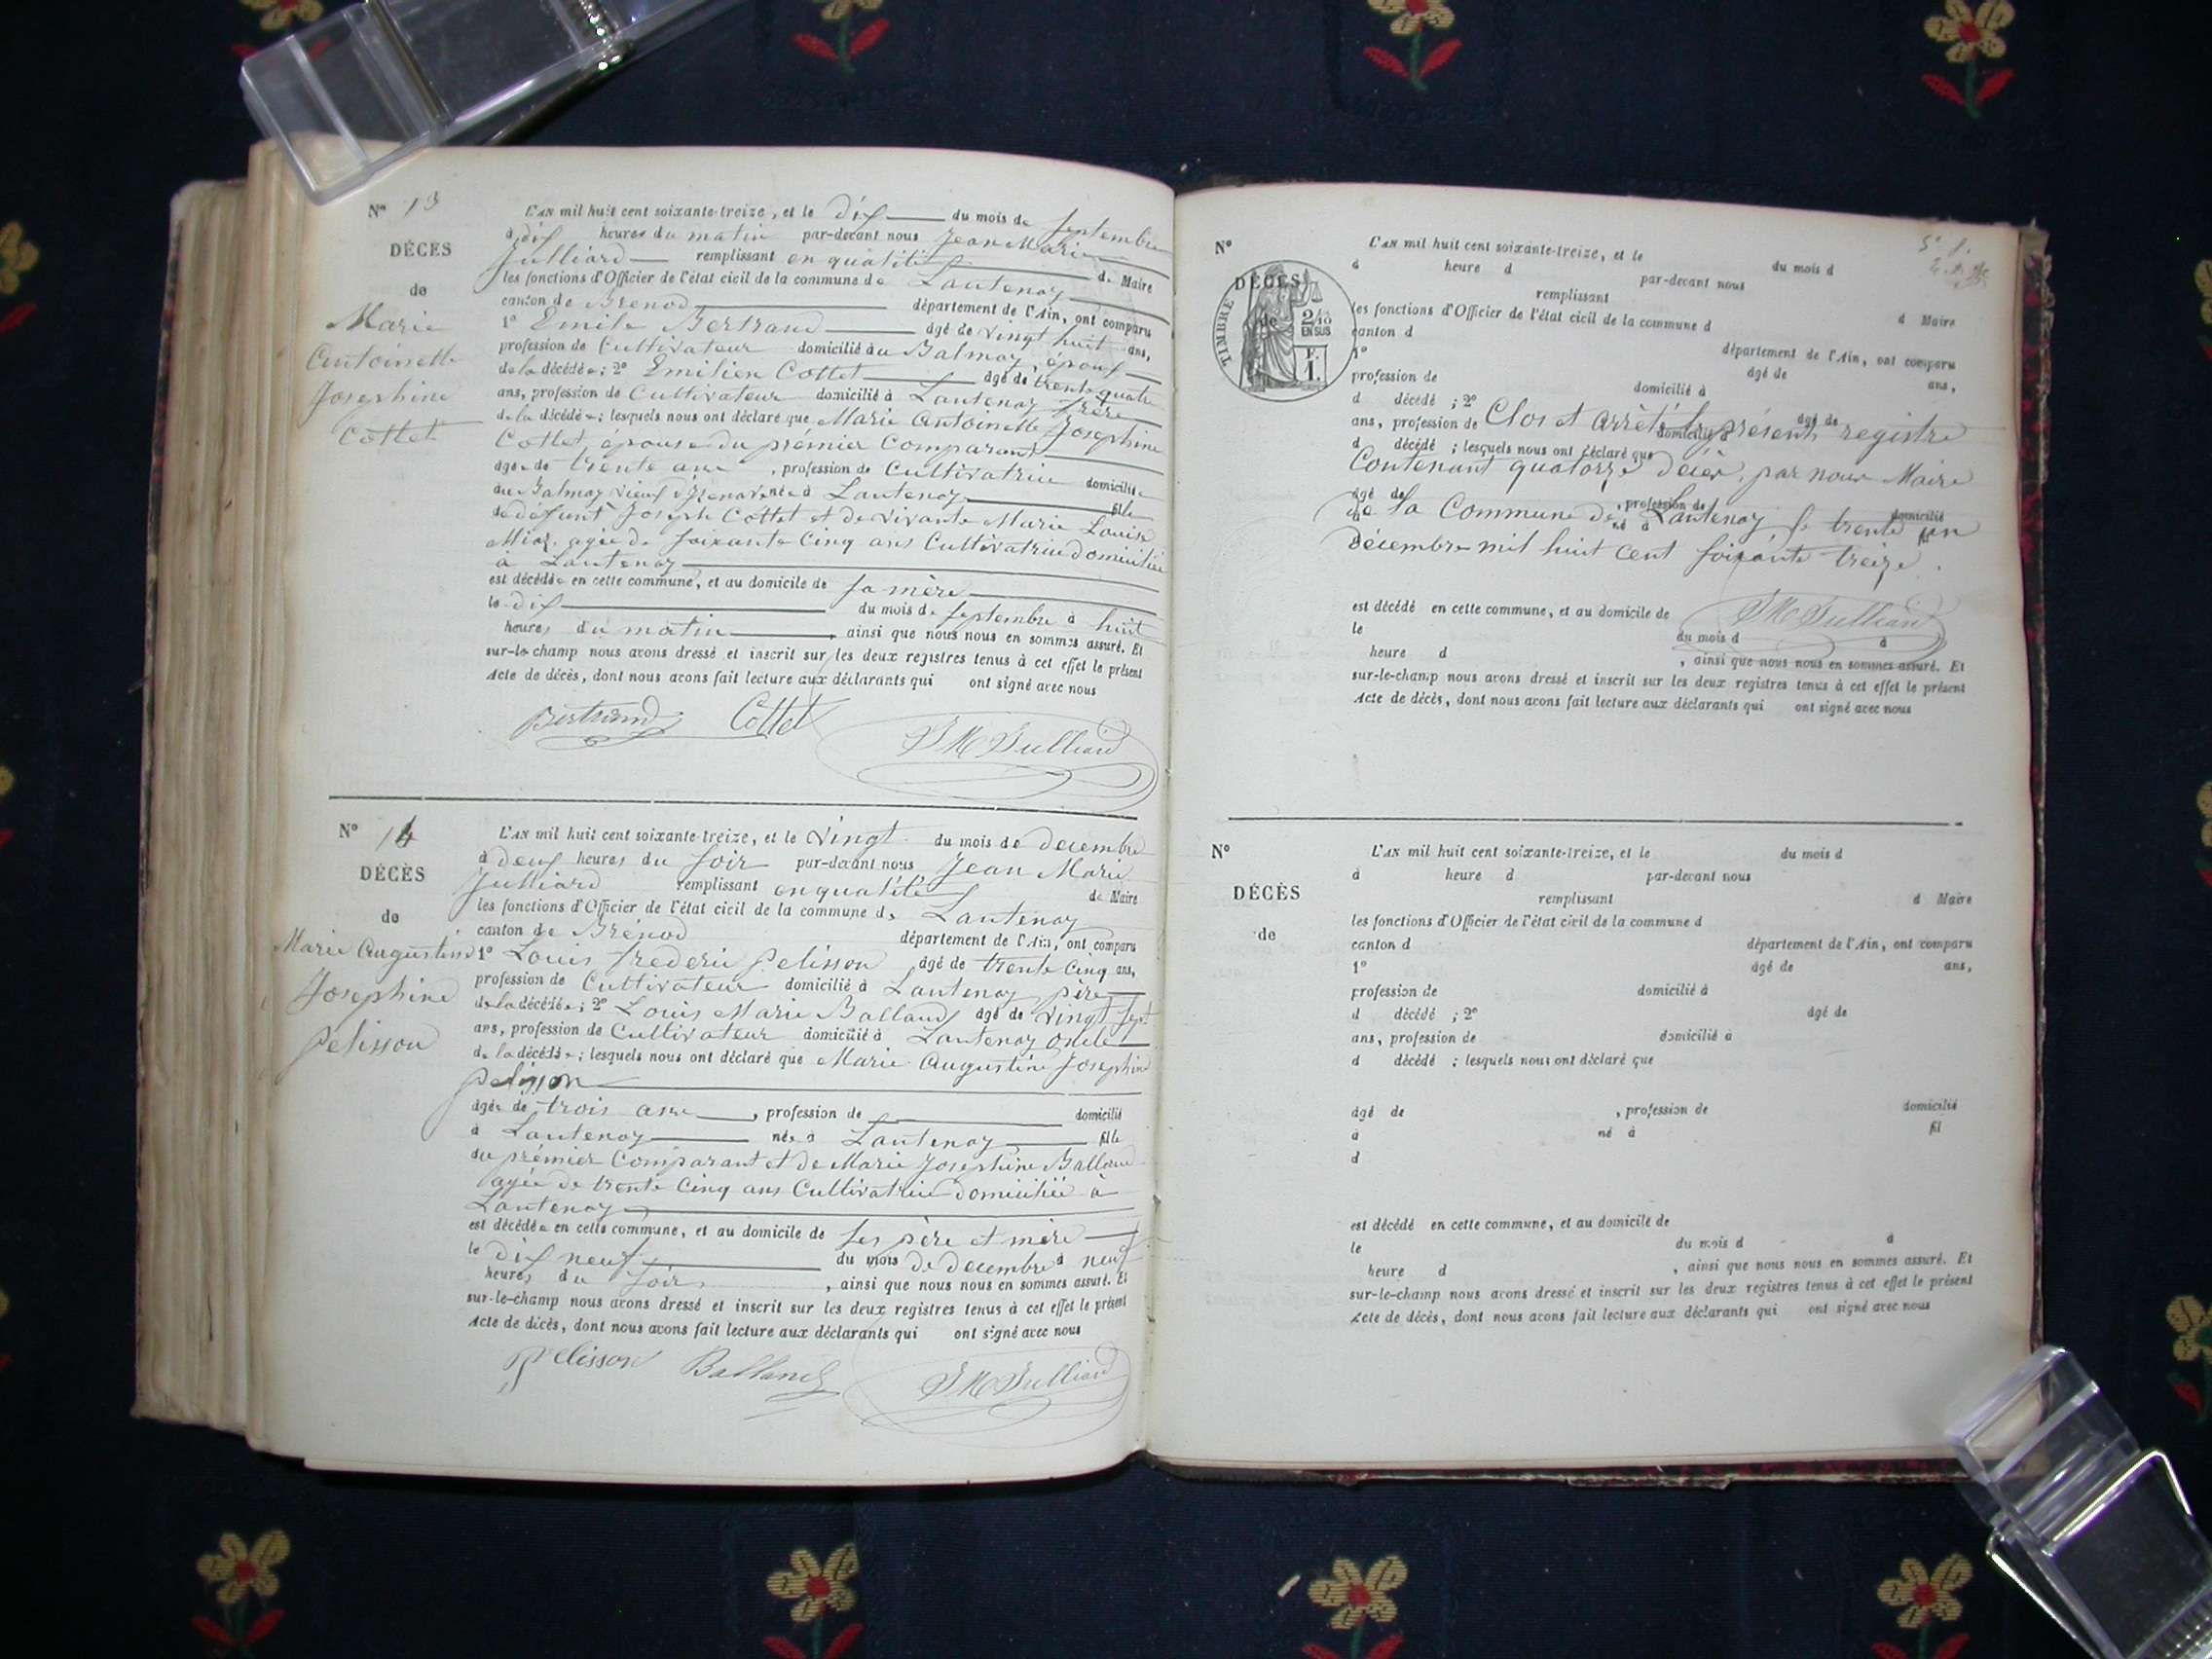 N° 13
DÉCÈS
de
Marie
Antoinette
Josephine
Cottet
L'AN mil huit cent soixante-treize, et le dix du mois de septembre
à dix heures du matin par-devant nous Jean Marie
Julliard remplissant en qualité de Maire
les fonctions d'Officier de l'état civil de la commune de Lantenay
canton de Brénod département de l'Ain, ont comparu
1° Emile Bertrand âgé de vingt huit ans,
profession de Cultivateur domicilié au Balmay, époux
de la décédée; 2° Emilien Cottet âgé de trente quatre
ans, profession de Cultivateur domicilié à Lantenay frère
de la décédée; lesquels nous ont déclaré que Marie Antoinette Josephine
Cottet, épouse du prémier Comparant
âgée de trente ans, profession de Cultivatrice domiciliée
au Balmay Vieux d'Izenave née à Lantenay fille
de défunt Joseph Cottet et de vivante Marie Louise
agée de soixante Cinq ans Cultivatrice domiciliée
à Lantenay
est décédée en cette commune, et au domicile de sa mère
le dix du mois de septembre à huit
heures du matin, ainsi que nous nous en sommes assuré. Et
sur-le-champ nous avons dressé et inscrit sur les deux registres tenus à cet effet le présent
Acte de décès, dont nous avons fait lecture aux déclarants qui ont signé avec nous
Bertrand Cottet JM Julliard
N° 14
DÉCÈS
de
Marie Augustine
Josephine
Pelisson
L'AN mil huit cent soixante-treize, et le vingt du mois de decembre
à deux heures du soir par-devant nous Jean Marie
Julliard remplissant en qualité de Maire
les fonctions d'Officier de l'état civil de la commune de Lantenay
canton de Brénod département de l'Ain, ont comparu
1° Louis frederic Pelisson âgé de trente Cinq ans,
profession de Cultivateur domicilié à Lantenay père
de la décédée; 2° Louis Marie Balland âgé de vingt sept
ans, profession de Cultivateur domicilié à Lantenay oncle
de la décédée; lesquels nous ont déclaré que Marie Augustine Josephine
Pelisson
âgée de trois ans, profession de domicilié
à Lantenay née à Lantenay fille
du prémier Comparant et de Marie Josephine Balland
agée de trente Cinq ans Cultivatrice domiciliée à
Lantenay
est décédée en cette commune, et au domicile de ses père et mère
le dix neuf du mois de decembre à neuf
heures du soir, ainsi que nous nous en sommes assuré. Et
sur-le-champ nous avons dressé et inscrit sur les deux registres tenus à cet effet le présent
Acte de décès, dont nous avons fait lecture aux déclarants qui ont signé avec nous
Pelisson Balland JM Julliard
N°
DÉCÈS
de
TIMBRE
2/10
EN SUS
F.
1.
L'AN mil huit cent soixante-treize, et le du mois d
à heure d par-devant nous
remplissant d Maire
les fonctions d'Officier de l'état civil de la commune d
canton d département de l'Ain, ont comparu
1° âgé de ans,
profession de domicilié à
d décédé ; 2° âgé de
ans, profession de domicilié à
Clos et Arrêté le présent registre
d décédé ; lesquels nous ont déclaré que
Contenant quatorze décès, par nous Maire
âgé de , profession de domicilié
de la Commune de Lantenay le trente un
à né à fil
décembre mil huit cent soixante treize.
est décédé en cette commune, et au domicile de
JM Julliard
le du mois d à
heure d , ainsi que nous nous en sommes assuré. Et
sur-le-champ nous avons dressé et inscrit sur les deux registres tenus à cet effet le présent
Acte de décès, dont nous avons fait lecture aux déclarants qui ont signé avec nous
N°
DÉCÈS
de
L'AN mil huit cent soixante-treize, et le du mois d
à heure d par-devant nous
remplissant d Maire
les fonctions d'Officier de l'état civil de la commune d
canton d département de l'Ain, ont comparu
1° âgé de ans,
profession de domicilié à
d décédé ; 2° âgé de
ans, profession de domicilié à
d décédé ; lesquels nous ont déclaré que
âgé de , profession de domicilié
à né à fil
d
est décédé en cette commune, et au domicile de
le du mois d à
heure d , ainsi que nous nous en sommes assuré. Et
sur-le-champ nous avons dressé et inscrit sur les deux registres tenus à cet effet le présent
Acte de décès, dont nous avons fait lecture aux déclarants qui ont signé avec nous